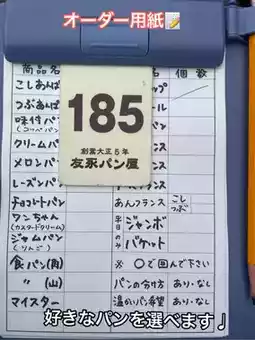 オーダー用紙📝
商品名
個数
こしあんぱ
つぶあんぱ
味付パン
(コッペパン)
クリームパ
メロンパン
レーズンパン
チョコレートパン
ワンちゃん
(カスタードクリーム)
ジャムパン
(りんご)
食パン(角)
〃 (山)
マイスター
185
創業大正5年
友永パン屋
ップ
ール
フランス
あんフランス
こし
つぶ
平日のみ
ジャンボ
バケット
※○で囲んで下さい
パンの分け方
あり・なし
温かいパン希望
あり・なし
好きなパンを選べます♩